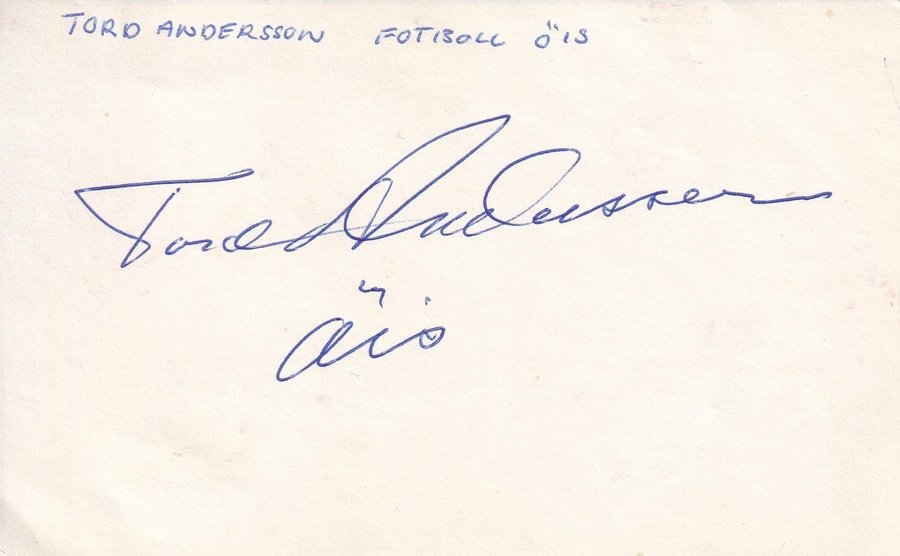 TORD ANDERSSON FOTBOLL ÖIS
Tord Andersson
öis